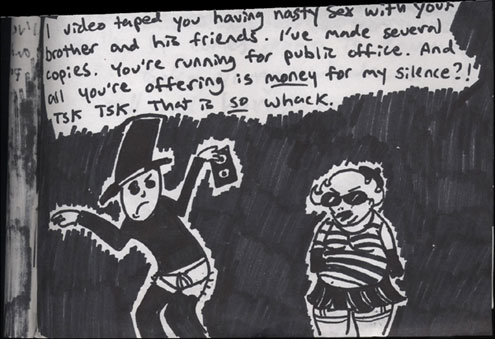 I video taped you having nasty sex with your
brother and his friends. I've made several
copies. You're running for public office. And
all you're offering is money for my silence?!
TSK TSK. That is so whack.